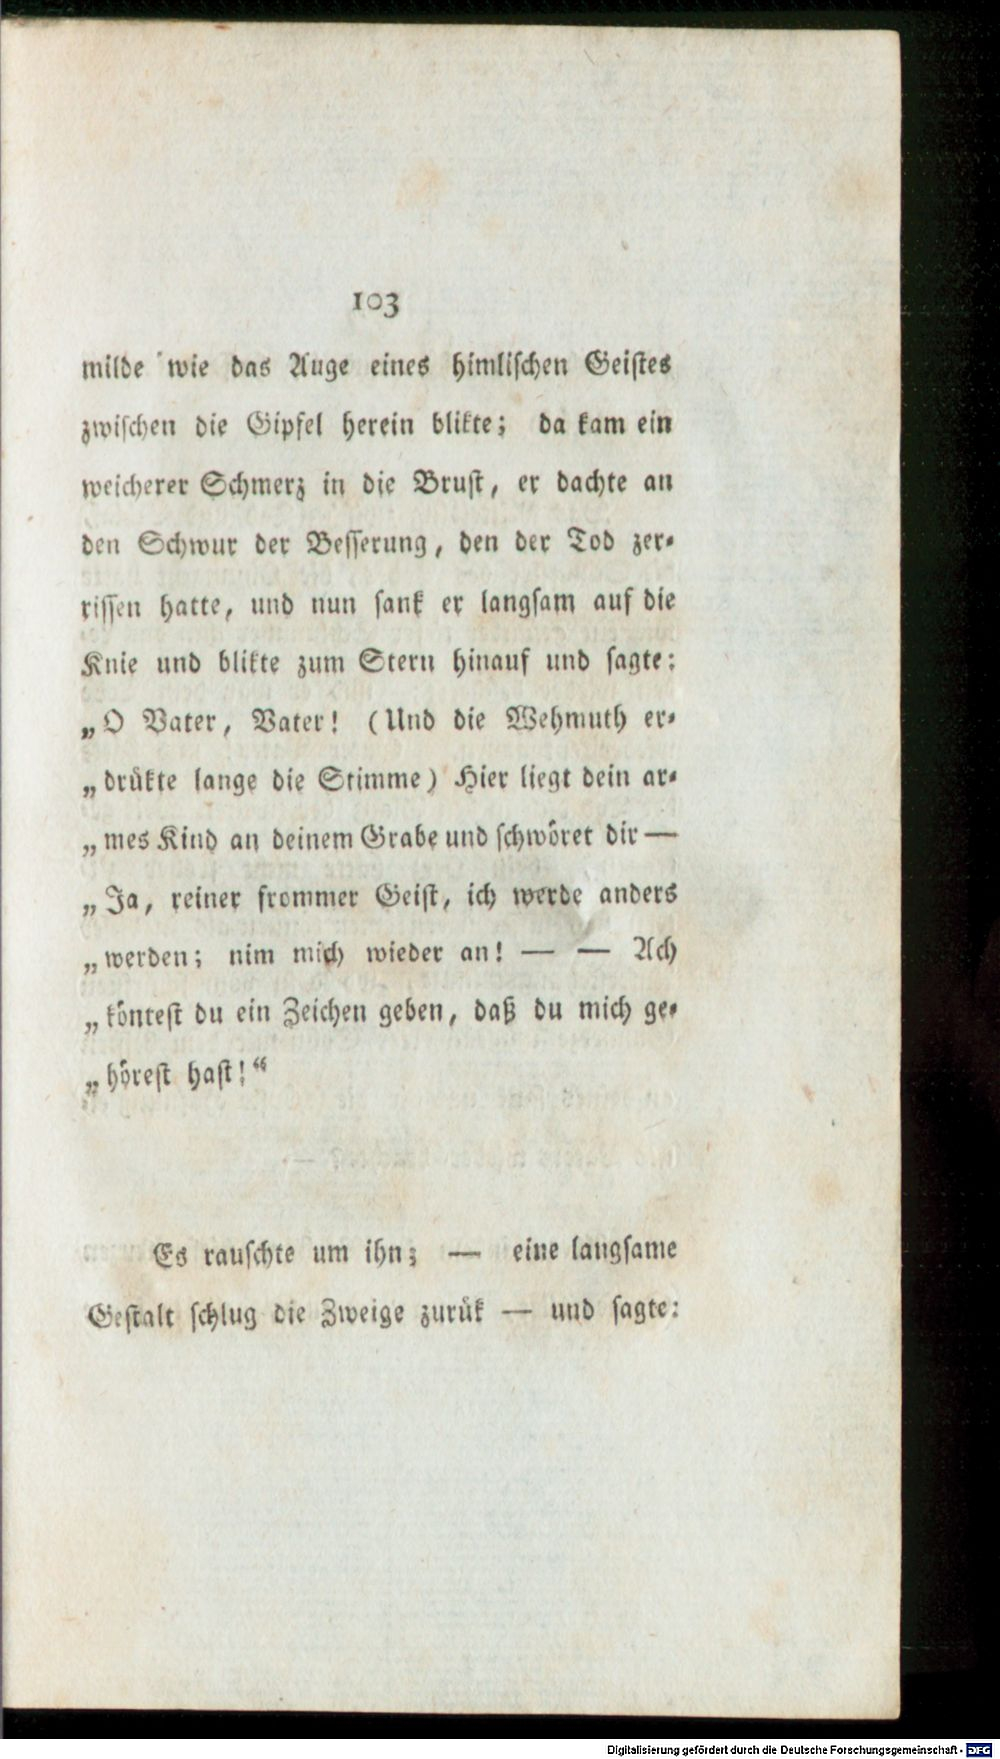 103
milde wie das Auge eines himliſchen Geiſtes
zwiſchen die Gipfel herein blikte; da kam ein
weicherer Schmerz in die Bruſt, er dachte an
den Schwur der Beſſerung, den der Tod zer⸗
riſſen hatte, und nun ſank er langſam auf die
Knie und blikte zum Stern hinauf und ſagte:
„O Vater, Vater! (Und die Wehmuth er⸗
„druͤkte lange die Stimme) Hier liegt dein ar⸗
„mes Kind an deinem Grabe und ſchwoͤret dir —
„Ja, reiner frommer Geiſt, ich werde anders
„werden; nim mich wieder an! — — Ach
„koͤnteſt du ein Zeichen geben, daß du mich ge⸗
„hoͤreſt haſt!“
Es rauſchte um ihn; — eine langſame
Geſtalt ſchlug die Zweige zuruͤk — und ſagte:
Digitalisierung gefördert durch die Deutsche Forschungsgemeinschaft - DFG